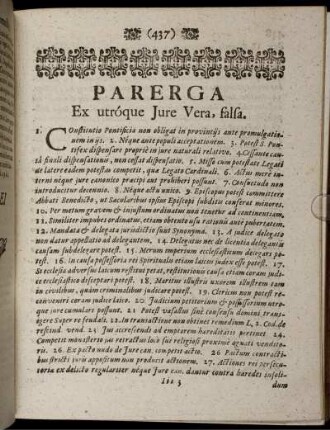 (437)
PARERGA
Ex utróque Jure Vera, falsa.
1. COnstitutio Pontificia non obligat in provinciis ante promulgatio-
nem in ijs. 2. Néque ante populi acceptationem. 3. Potest S. Pon-
tifex dispensare propriè in jure naturali relativo. 4. Cessante cau-
sâ finali dispensationis, non cessat dispensatio. 5. Missè cum potestate Legati
de latere eadem potestas competit, qua Legato Cardinali. 6. Actus mere in-
ternè neque jure canonico præcipi aut prohiberi possunt. 7. Consuetudo non
introducitur decennio. 8. Néque actu unico. 9. Episcopus potest committere
Abbati Benedicto, ut Sacularibus ipsius Episcopi subditis conferat minores.
10. Per metum gravem & injustum ordinatus non tenetur ad continentiam.
11. Similiter impubes ordinatur, etiam obtento usu rationis ante pubertatem.
12. Mandata & delegata jurisdictio sunt Synonyma. 13. A judice delegato
non datur appellatio ad delegantem. 14. Delegatus nec de licentia delegantis
causam subdelegare potest. 15. Merum imperium ecclesiasticum delegari po-
test. 16. In causa possessoria rei Spiritualis etiam laicus judex esse potest. 17.
Si ecclesia adversus laicum restitui petat, restitutionis causa etiam coram judi-
ce ecclesiastico disceptari potest. 18. Maritus illustris uxorem illustrem tam
in civilibus, quàm criminalibus judicare potest. 19. Clericus non potest re-
conveniri coram judice laico. 20. Judicium petitorium & possessorium utro-
que jure cumulare possunt. 21. Potest vasallus sine consensu domini trans-
agere super re feudali. 22. In transactione non obtinet remedium L. 2. Cod. de
rescind. vend. 23. Jus accrescendi ad emptorem hæreditatis pertinet. 24.
Competit monasterio jus retractus loco sui religiosi proximè agnati venden-
tis. 25. Ex pacto nudo de Jure can. competit actio. 26. Pactum contracti-
bus stricti juris appositum non producit actionem. 27. Actiones rei persecu-
toria ex delicto regulariter néque Jure can. dantur contra hæredes in soli-
Iii 3
dum